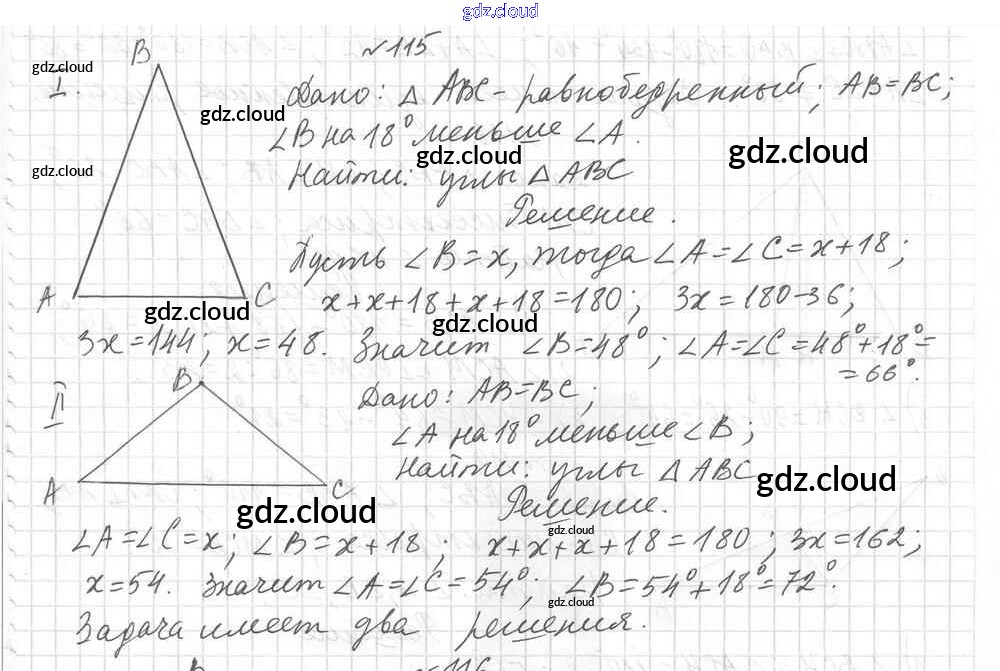 gdz.cloud
№115
B
gdz.cloud
I.
Дано: △ ABC - равнобедренный; AB=BC;
gdz.cloud
∠B на 18° меньше ∠A.
gdz.cloud
gdz.cloud
gdz.cloud
Найти: углы △ ABC
Решение.
Пусть ∠B = x, тогда ∠A=∠C=x+18;
A
C
x+x+18+x+18=180; 3x=180-36;
gdz.cloud
gdz.cloud
3x=144; x=48. Значит ∠B=48°; ∠A=∠C=48°+18°=
=66°.
II
B
Дано: AB=BC;
∠A на 18° меньше ∠B;
Найти: углы △ ABC
gdz.cloud
A
C
Решение.
gdz.cloud
gdz.cloud
∠A=∠C=x; ∠B=x+18; x+x+x+18=180; 3x=162;
x=54. Значит ∠A=∠C=54°; ∠B=54°+18°=72°.
gdz.cloud
Задача имеет два решения.
B
№116